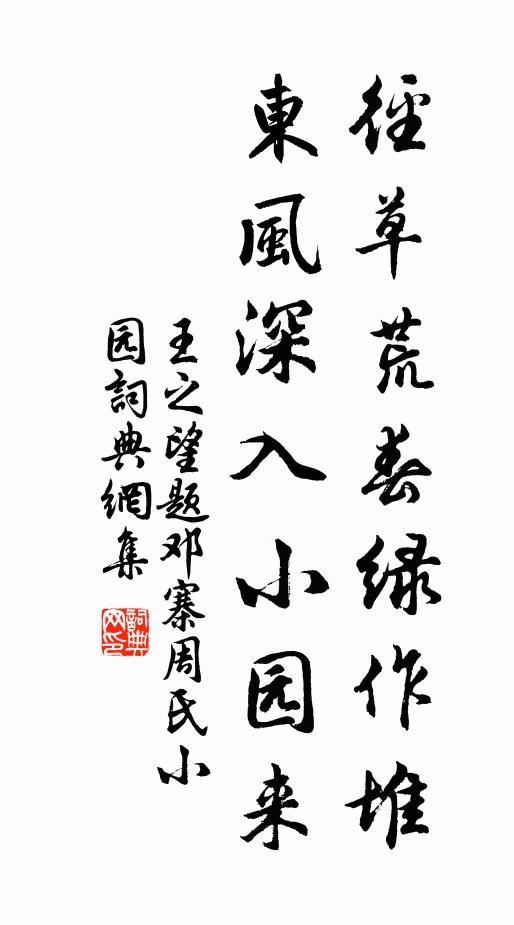 徑草荒春绿作堆
東風深入小园来
王之望题邓寨周氏小
园詞典網集
詞典
网印